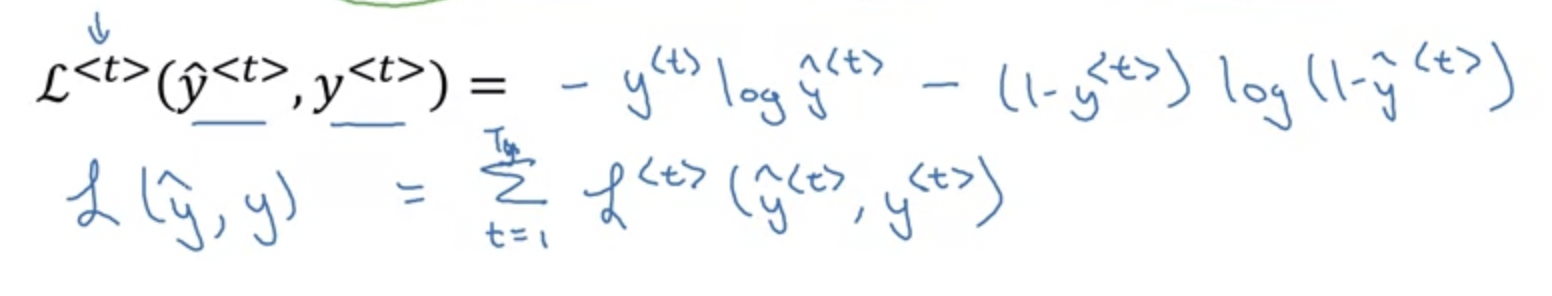 ℒ^{<t>}(ŷ^{<t>}, y^{<t>}) = - y^{(t)} log ŷ^{(t)} - (1-y^{<t>}) log (1-ŷ^{<t>})
ℒ(ŷ, y) = \sum_{t=1}^{T_y} ℒ^{<t>}(ŷ^{<t>}, y^{<t>})